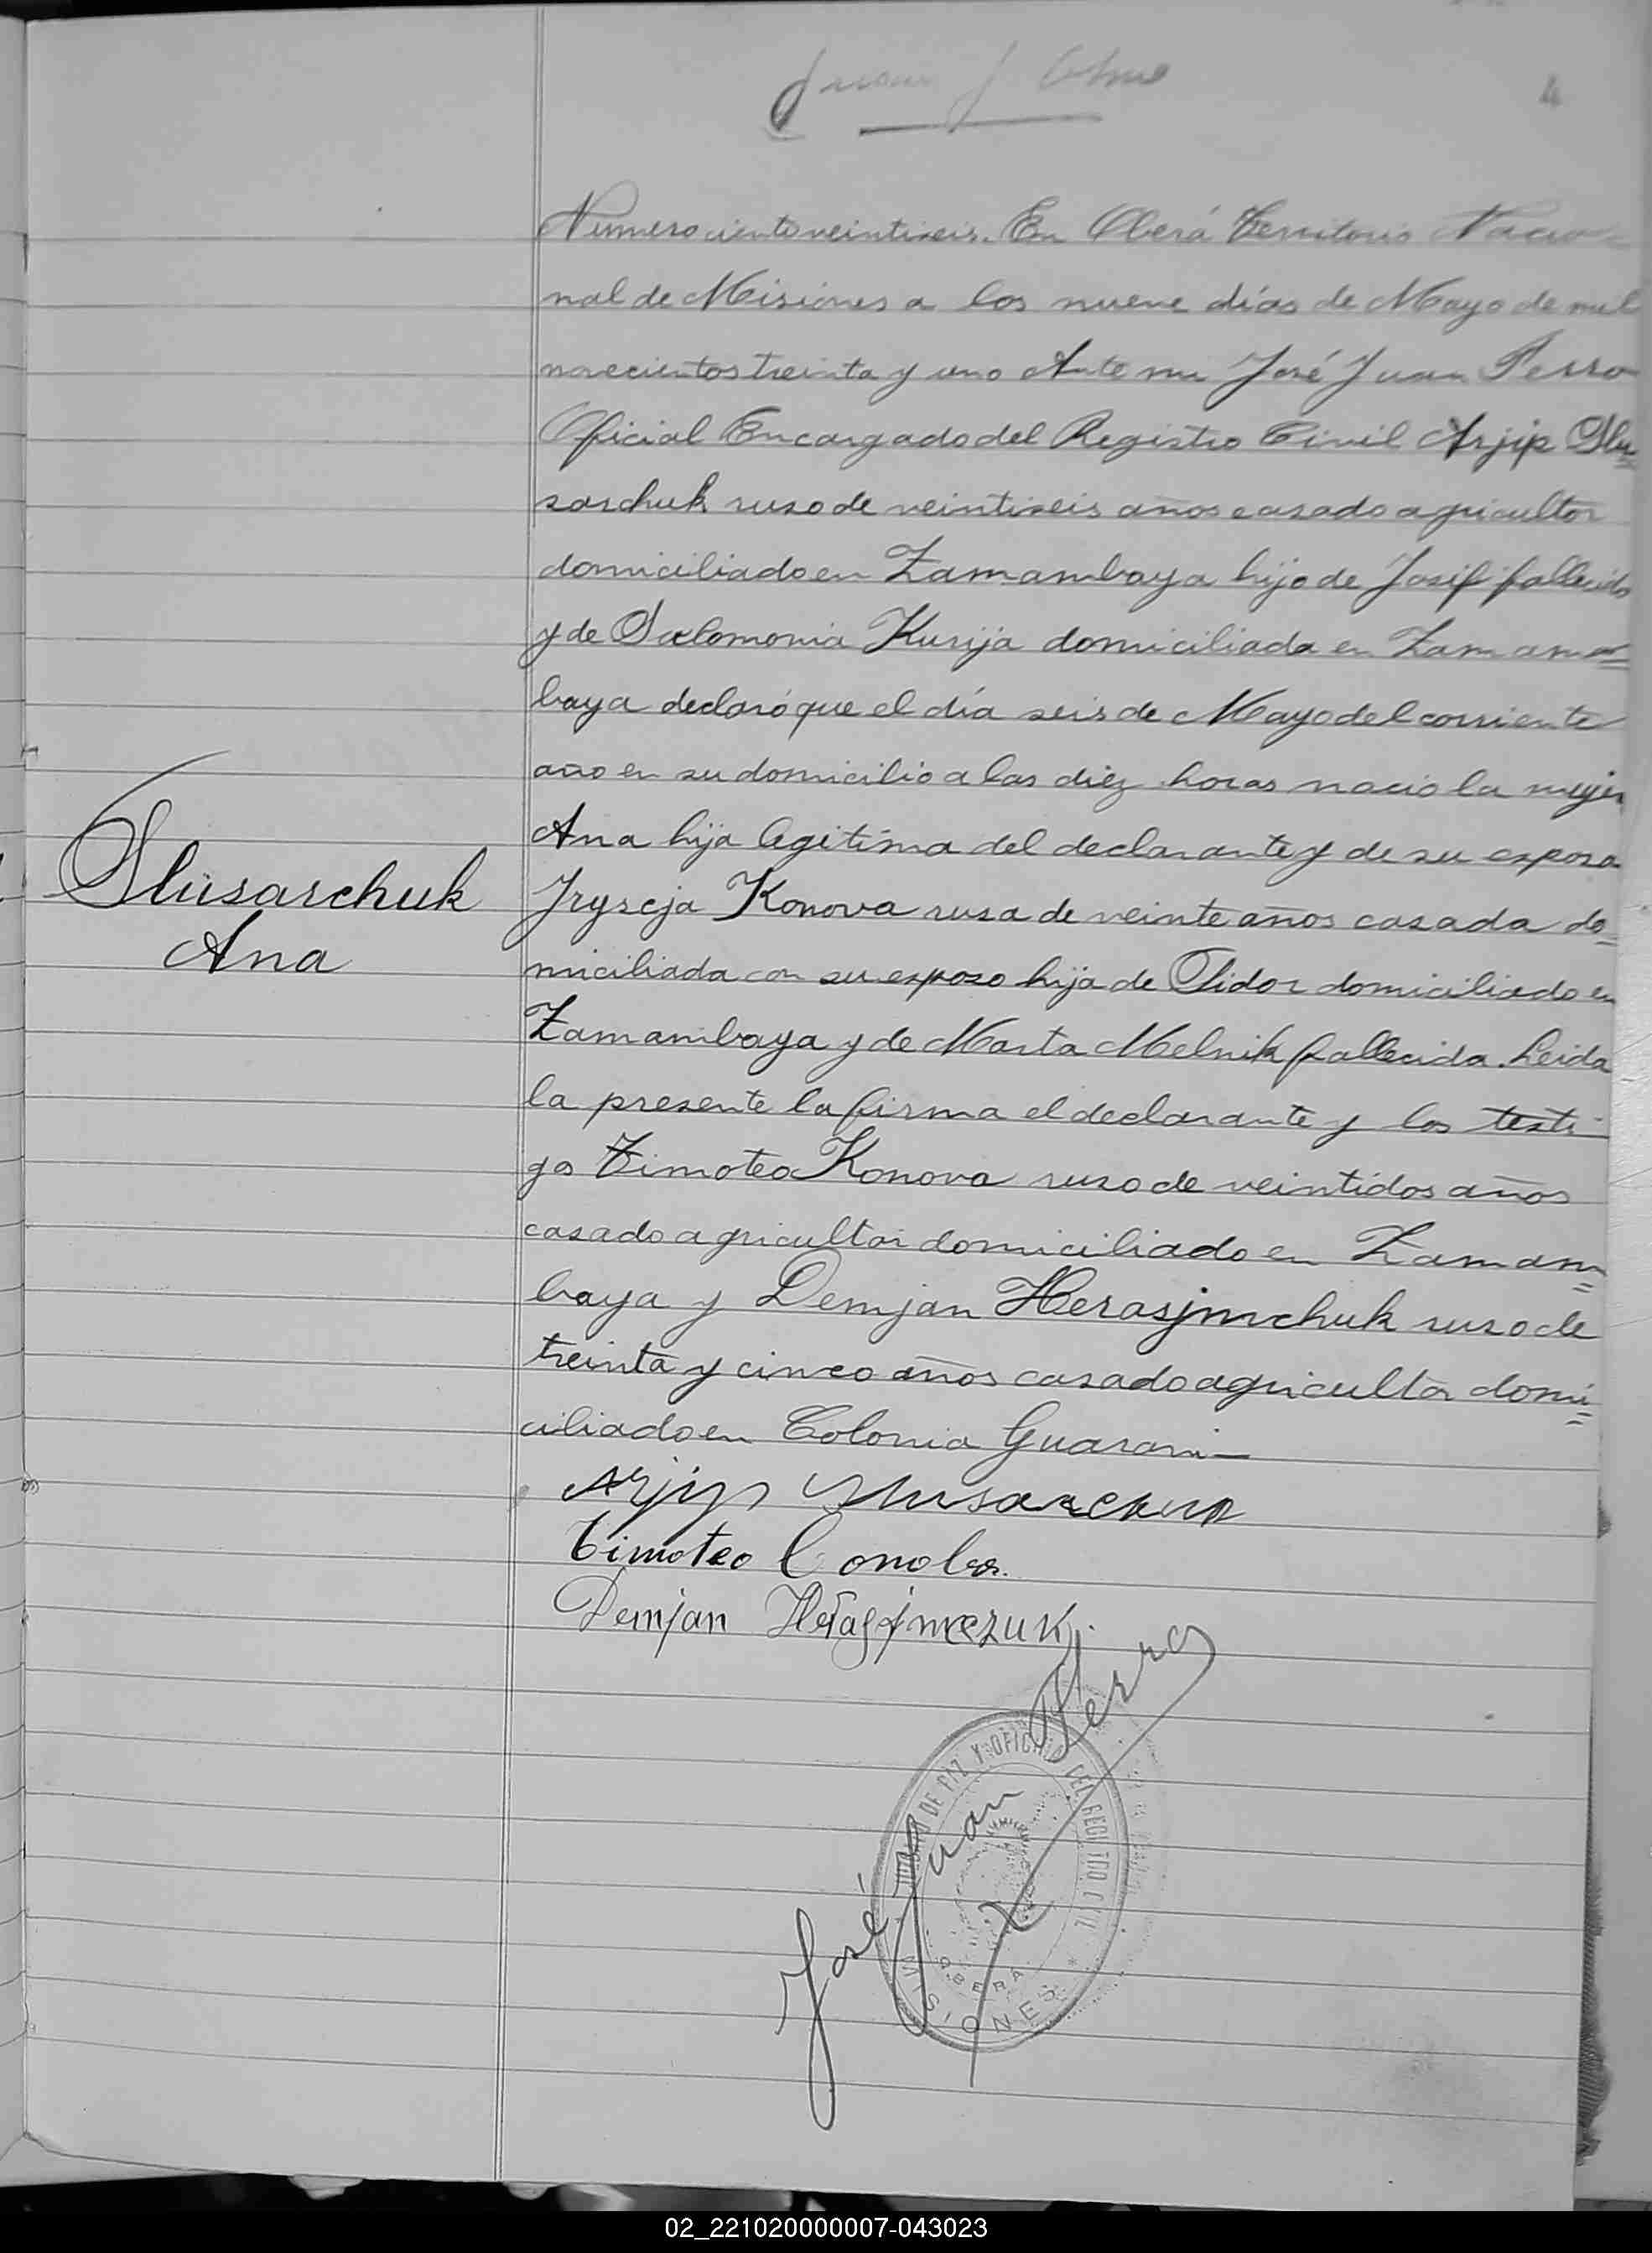 4
Numero ciento veintiseis. En Oberá Territorio Nacio-
nal de Misiones a los nueve días de Mayo de mil
novecientos treinta y uno Ante mi José Juan Ferro
Oficial Encargado del Registro Civil Arjip Slu=
sarchuk ruso de veintiseis años casado agricultor
domiciliado en Zamambaya hijo de Josif fallecido
y de Salomonia Kurija domiciliada en Zamam=
baya declaró que el día seis de Mayo del corriente
año en su domicilio a las diez horas nacio la mujer
Ana hija legitima del declarante y de su esposa
Slusarchuk
Ana
Jryscja Konova rusa de veinte años casada do=
miciliada con su esposo hija de Sidor domiciliado en
Zamambaya y de Marta Melnik fallecida. Leida
la presente la firma el declarante y los testi-
gos Timoteo Konova ruso de veintidos años
casado agricultor domiciliado en Zamam=
baya y Demjan Herasjmchuk ruso de
treinta y cinco años casado agricultor domi=
ciliado en Colonia Guarani
Arjip Slusarchuk
Timoteo Conova.
Demjan Herasjmczuk.
José Juan Ferro
JUZGADO DE PAZ Y OFICINA DEL REGISTRO CIVIL
OBERÁ
MISIONES
02_221020000007-043023